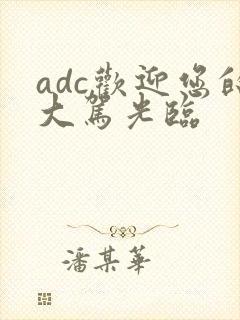 adc歡迎您的
大駕光臨
潘某華